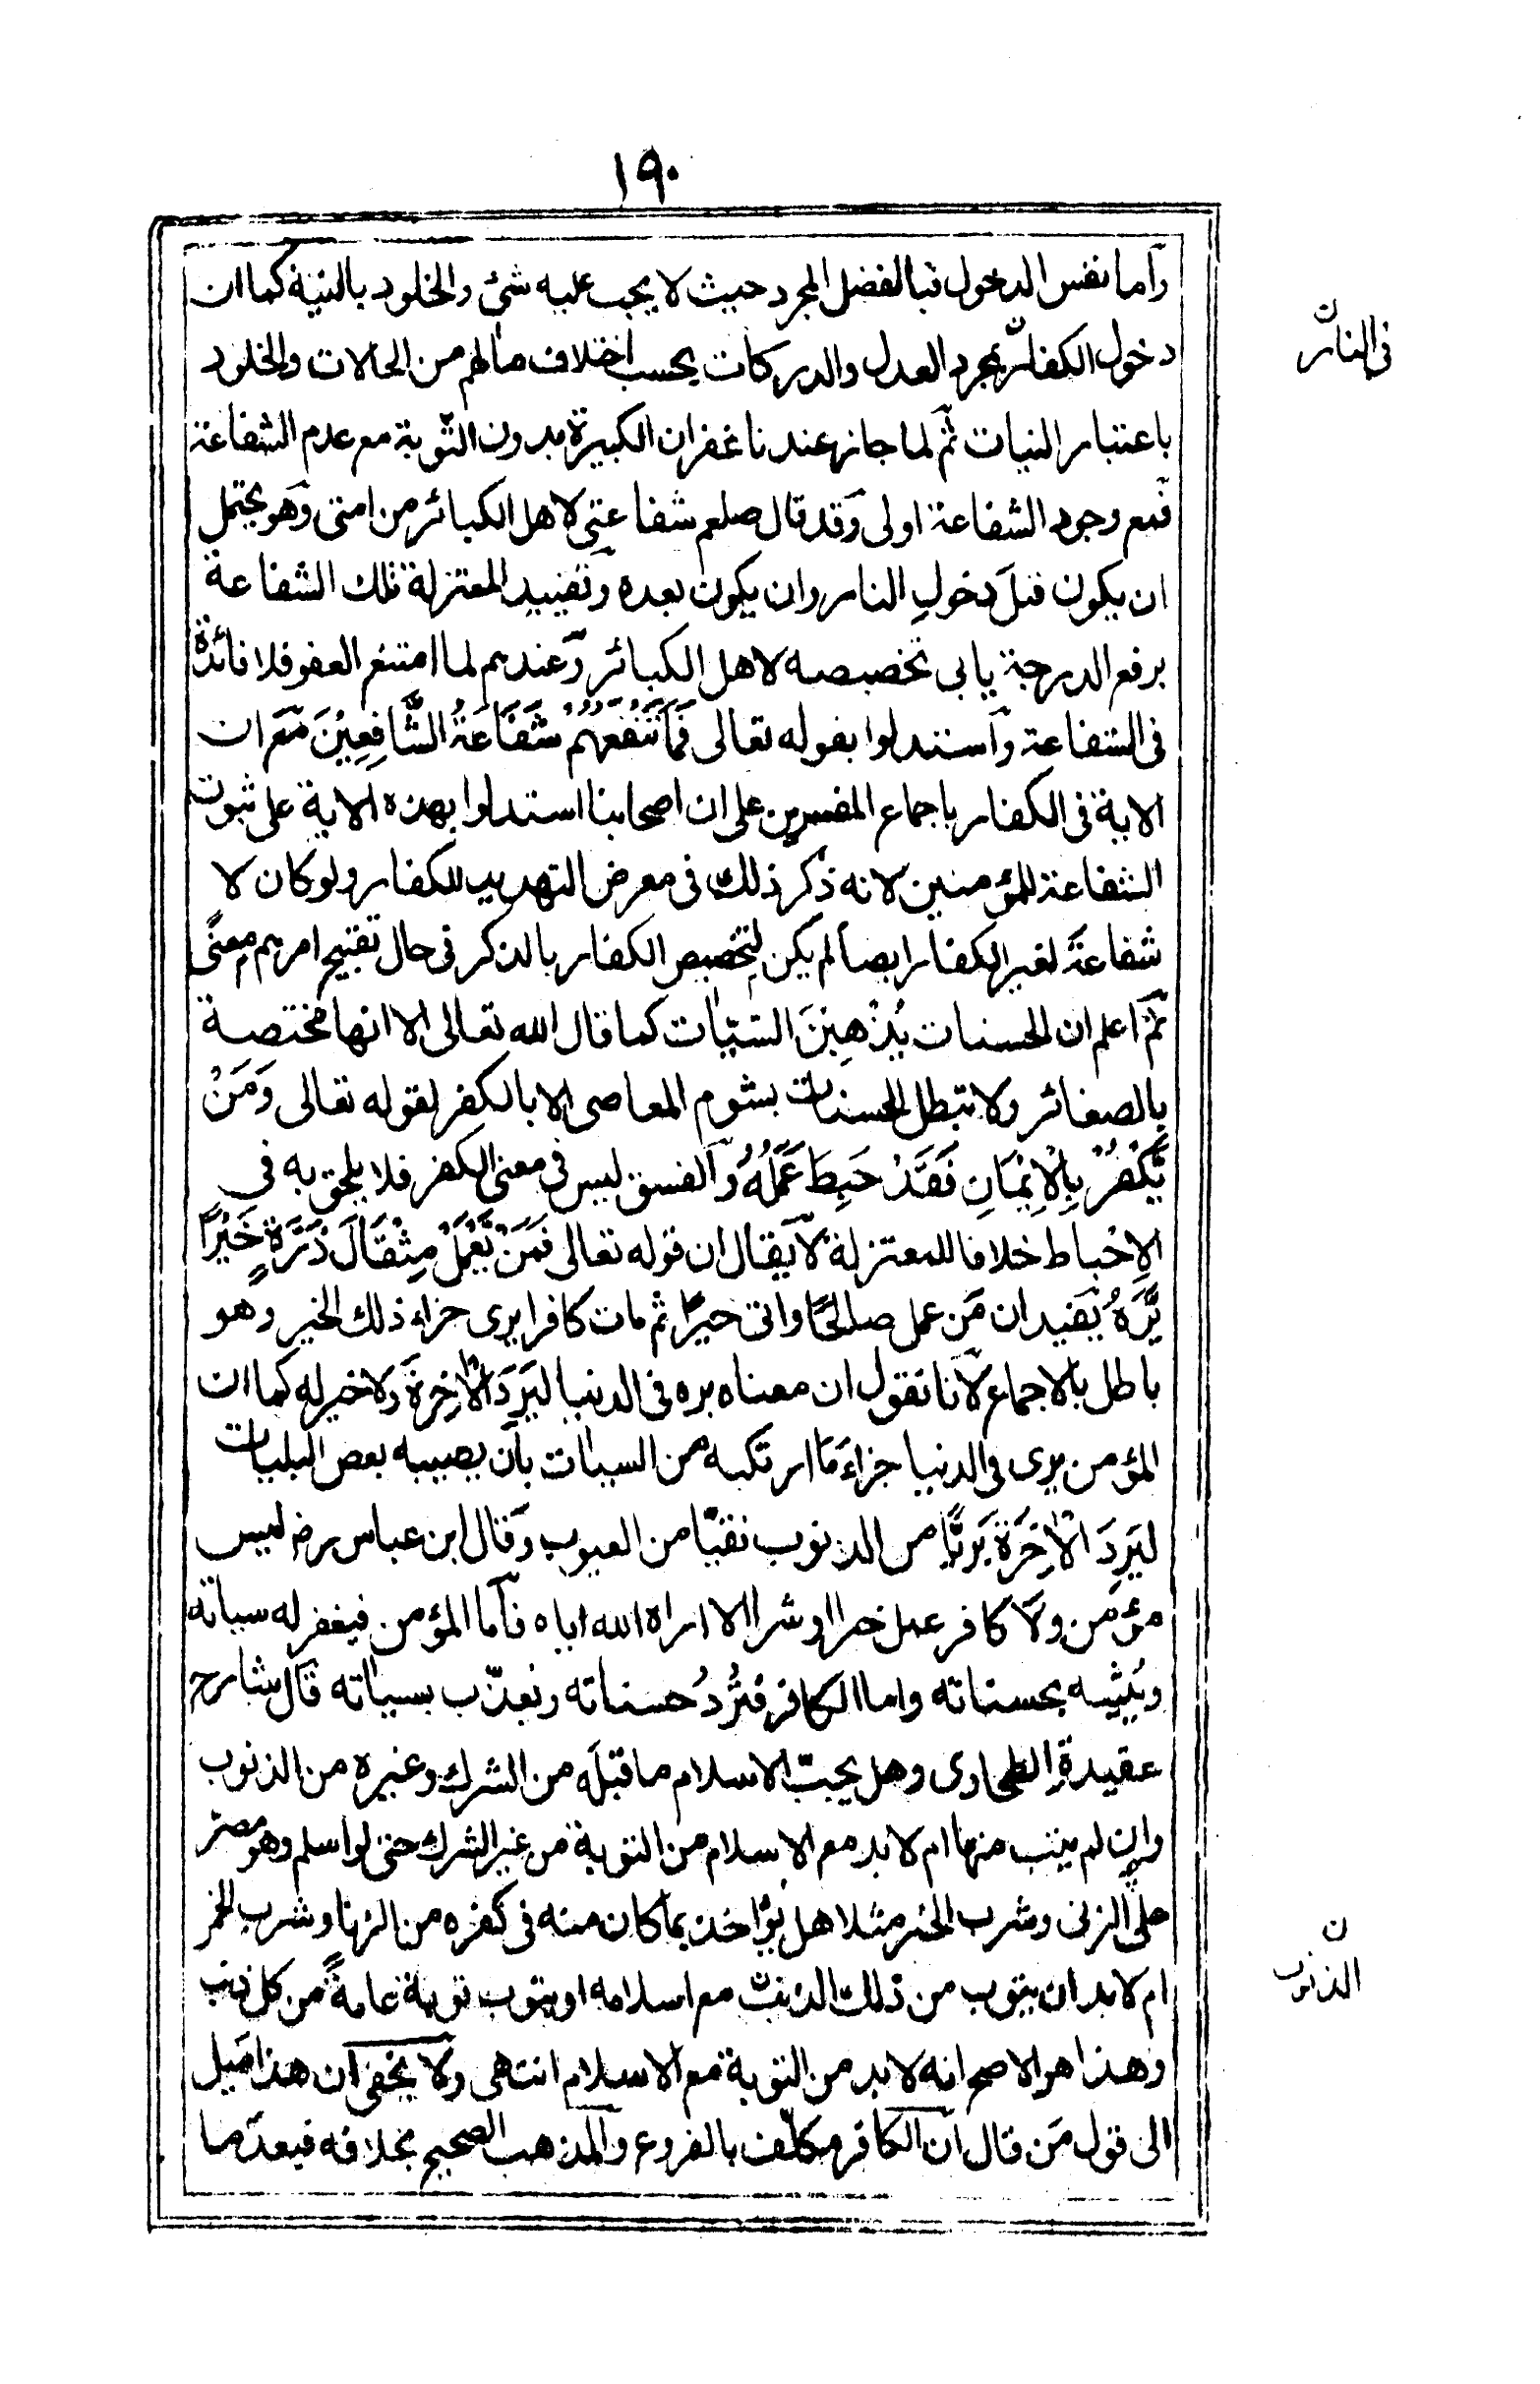 ١٩٠
وأما نفس الدخول فبالفضل المجرد حيث لا يجب عليه شئ والخلود بالنية كما ان
دخول الكفار بمجرد العدل والدركات بحسب اختلاف مالهم من الحالات والخلود
فى النار
باعتبار النيات ثم لما جاز عندنا غفران الكبيرة بدون التوبة مع عدم الشفاعة
فمع وجود الشفاعة اولى وقد قال صلعم شفاعتى لاهل الكبائر من امتى وهو يحتمل
ان يكون قبل دخول النار وان يكون بعده وتقييد المعتزلة تلك الشفاعة
برفع الدرجة يابى تخصيصه لاهل الكبائر وعندهم لما امتنع العفو فلا فائدة
فى الشفاعة واستدلوا بقوله تعالى فَمَا تَنْفَعُهُمْ شَفَاعَةُ الشَّافِعِيْنَ مع ان
الاية فى الكفار باجماع المفسرين على ان اصحابنا استدلوا بهذه الاية على ثبوت
الشفاعة للمؤمنين لانه ذكر ذلك فى معرض التهديد للكفار ولو كان لا
شفاعة لغير الكفار ايضا لم يكن لتخصيص الكفار بالذكر فى حال تقبيح امرهم معنًى
ثم اعلم ان الحسنات يُذْهِبْنَ السَّيِّاٰت كما قال الله تعالى الا انها مختصة
بالصغائر ولا تبطل الحسنات بشوم المعاصى الا بالكفر لقوله تعالى وَمَنْ
يَّكْفُرْ بِالْاِيْمَانِ فَقَدْ حَبِطَ عَمَلُهٗ والفسق ليس فى معنى الكفر فلا يلحق به فى
الاِحْباط خلافا للمعتزلة لا يقال ان قوله تعالى فَمَنْ يَّعْمَلْ مِثْقَالَ ذَرَّةٍ خَيْرًا
يَّرَهٗ يفيد ان مَن عمل صالحًا واتى خيرًا ثم مات كافرا يرى جزاء ذلك الخير وهو
باطل بالاجماع لانا نقول ان معناه يره فى الدنيا ليَرِدَ الْاٰخِرَةَ ولا خير له كما ان
المؤمن يرى فى الدنيا جزاءَ ما ارتكبه من السيات بان يصيبه بعض البليات
ليَرِدَ الْاٰخِرَةَ بَرِيًّا من الذنوب نقيًّا من العيوب وقال ابن عباس رض ليس
مؤمن ولا كافر عمل خيرا او شرا الا اراه الله اياه فاما المؤمن فيغفر له سياته
ويُثيبه بحسناته واما الكافر فتُرَدُّ حسناته ويعذّب بسياته قال شارح
عقيدة الطحاوى وهل يجبّ الاسلام ما قبله من الشرك وغيره من الذنوب
وان لم يتب منها ام لابد مع الاسلام من التوبة من غير الشرك حتى لو اسلم وهو مصر
على الزنى وشرب الخمر مثلا هل يؤاخذ بما كان منه فى كفره من الزنا وشرب الخمر
ام لابد ان يتوب من ذلك الذنب مع اسلامه او يتوب توبة عامةً من كل ذنب
الذنوب
وهذا هو الاصح انه لابد من التوبة مع الاسلام انتهى ولا يخفى ان هذا مَيل
الى قول مَن قال ان الكافر مكلّف بالفروع والمذهب الصحيح بخلافه فبعد ما